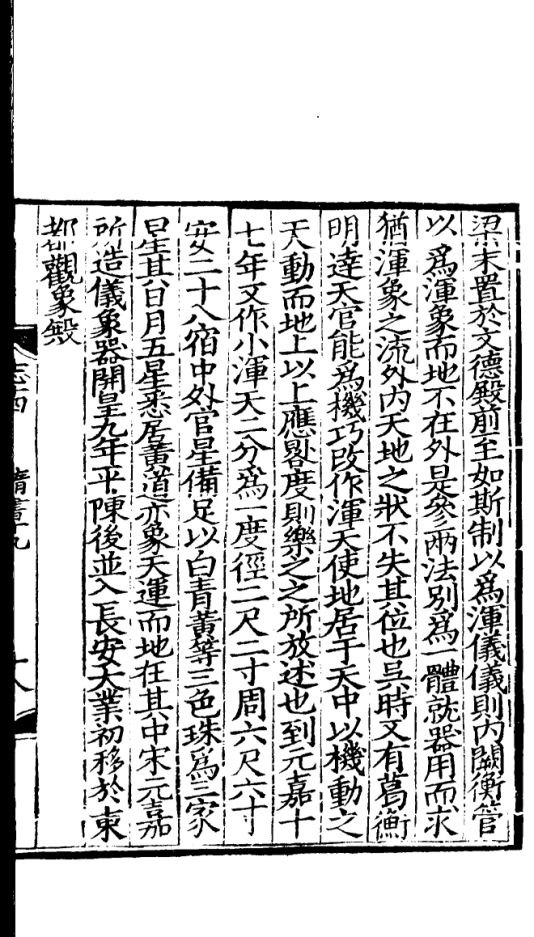 梁末置於文德殿前至如斯制以爲渾儀儀則內闕衡管
以爲渾象而地不在外是參兩法別爲一體就器用而求
猶渾象之流外內天地之狀不失其位也吳時又有葛衡
明達天官能爲機巧改作渾天使地居于天中以機動之
天動而地上以上應晷度則樂之之所放述也到元嘉十
七年又作小渾天二分爲一度徑二尺二寸周六尺六寸
安二十八宿中外官星備足以白青黃等三色珠爲三家
星其日月五星悉居黃道亦象天運而地在其中宋元嘉
所造儀象器開皇九年平陳後並入長安大業初移於東
都觀象殿
志十四 隋書十九